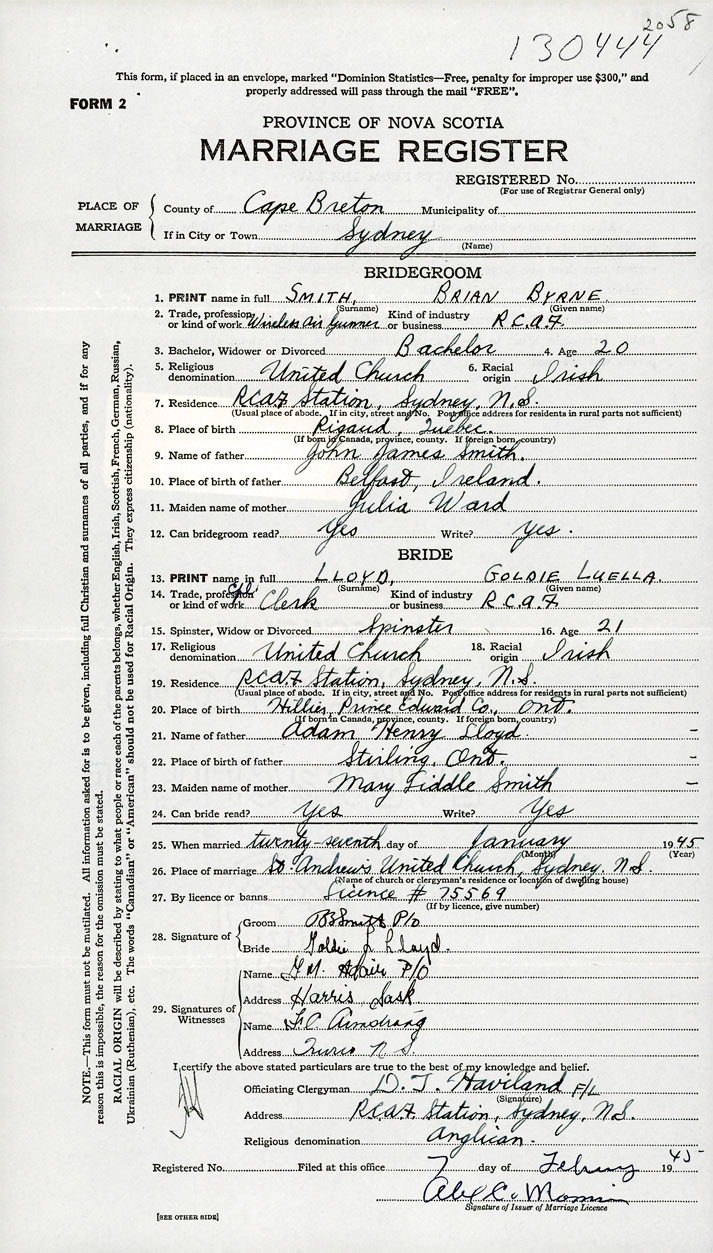 2058
130444
This form, if placed in an envelope, marked "Dominion Statistics—Free, penalty for improper use $300," and
properly addressed will pass through the mail "FREE".
FORM 2
PROVINCE OF NOVA SCOTIA
MARRIAGE REGISTER
REGISTERED No.
(For use of Registrar General only)
PLACE OF MARRIAGE
County of Cape Breton Municipality of
If in City or Town Sydney
(Name)
BRIDEGROOM
1. PRINT name in full SMITH, BRIAN BYRNE
(Surname) (Given name)
2. Trade, profession or kind of work Wireless Air Gunner Kind of industry or business R.C.A.F.
3. Bachelor, Widower or Divorced Bachelor 4. Age 20
5. Religious denomination United Church 6. Racial origin Irish
7. Residence RCAF Station, Sydney, N.S.
(Usual place of abode. If in city, street and No. Post office address for residents in rural parts not sufficient)
8. Place of birth Rigaud, Quebec.
(If born in Canada, province, county. If foreign born, country)
9. Name of father John James Smith.
10. Place of birth of father Belfast, Ireland.
11. Maiden name of mother Julia Ward
12. Can bridegroom read? Yes Write? Yes.
BRIDE
13. PRINT name in full LLOYD, GOLDIE LUELLA.
(Surname) (Given name)
14. Trade, profession or kind of work Cpl. Clerk Kind of industry or business R.C.A.F.
15. Spinster, Widow or Divorced Spinster 16. Age 21
17. Religious denomination United Church 18. Racial origin Irish
19. Residence RCAF Station, Sydney, N.S.
(Usual place of abode. If in city, street and No. Post office address for residents in rural parts not sufficient)
20. Place of birth Hillier, Prince Edward Co., Ont.
(If born in Canada, province, county. If foreign born, country)
21. Name of father Adam Henry Lloyd.
22. Place of birth of father Stirling, Ont.
23. Maiden name of mother Mary Liddle Smith
24. Can bride read? Yes Write? Yes
25. When married twenty-seventh day of January 1945
(Month) (Year)
26. Place of marriage St. Andrew's United Church, Sydney, N.S.
(Name of church or clergyman's residence or location of dwelling house)
27. By licence or banns Licence # 75569
(If by licence, give number)
28. Signature of
Groom BBSmith P/O
Bride Goldie L Lloyd.
29. Signatures of Witnesses
Name G.M. Adair P/O
Address Harris Sask
Name Armstrong
Address Truro N.S.
I certify the above stated particulars are true to the best of my knowledge and belief.
Officiating Clergyman D. J. Haviland F/L
(Signature)
Address RCAF Station, Sydney, N.S.
Religious denomination Anglican.
Registered No. Filed at this office 7 day of February 1945
Signature of Issuer of Marriage Licence
[SEE OTHER SIDE]
NOTE.—This form must not be mutilated. All information asked for is to be given, including full Christian and surnames of all parties, and if for any
reason this is impossible, the reason for the omission must be stated.
RACIAL ORIGIN will be described by stating to what people or race each of the parents belongs, whether English, Irish, Scottish, French, German, Russian,
Ukrainian (Ruthenian), etc. The words "Canadian" or "American" should not be used for Racial Origin. They express citizenship (nationality).